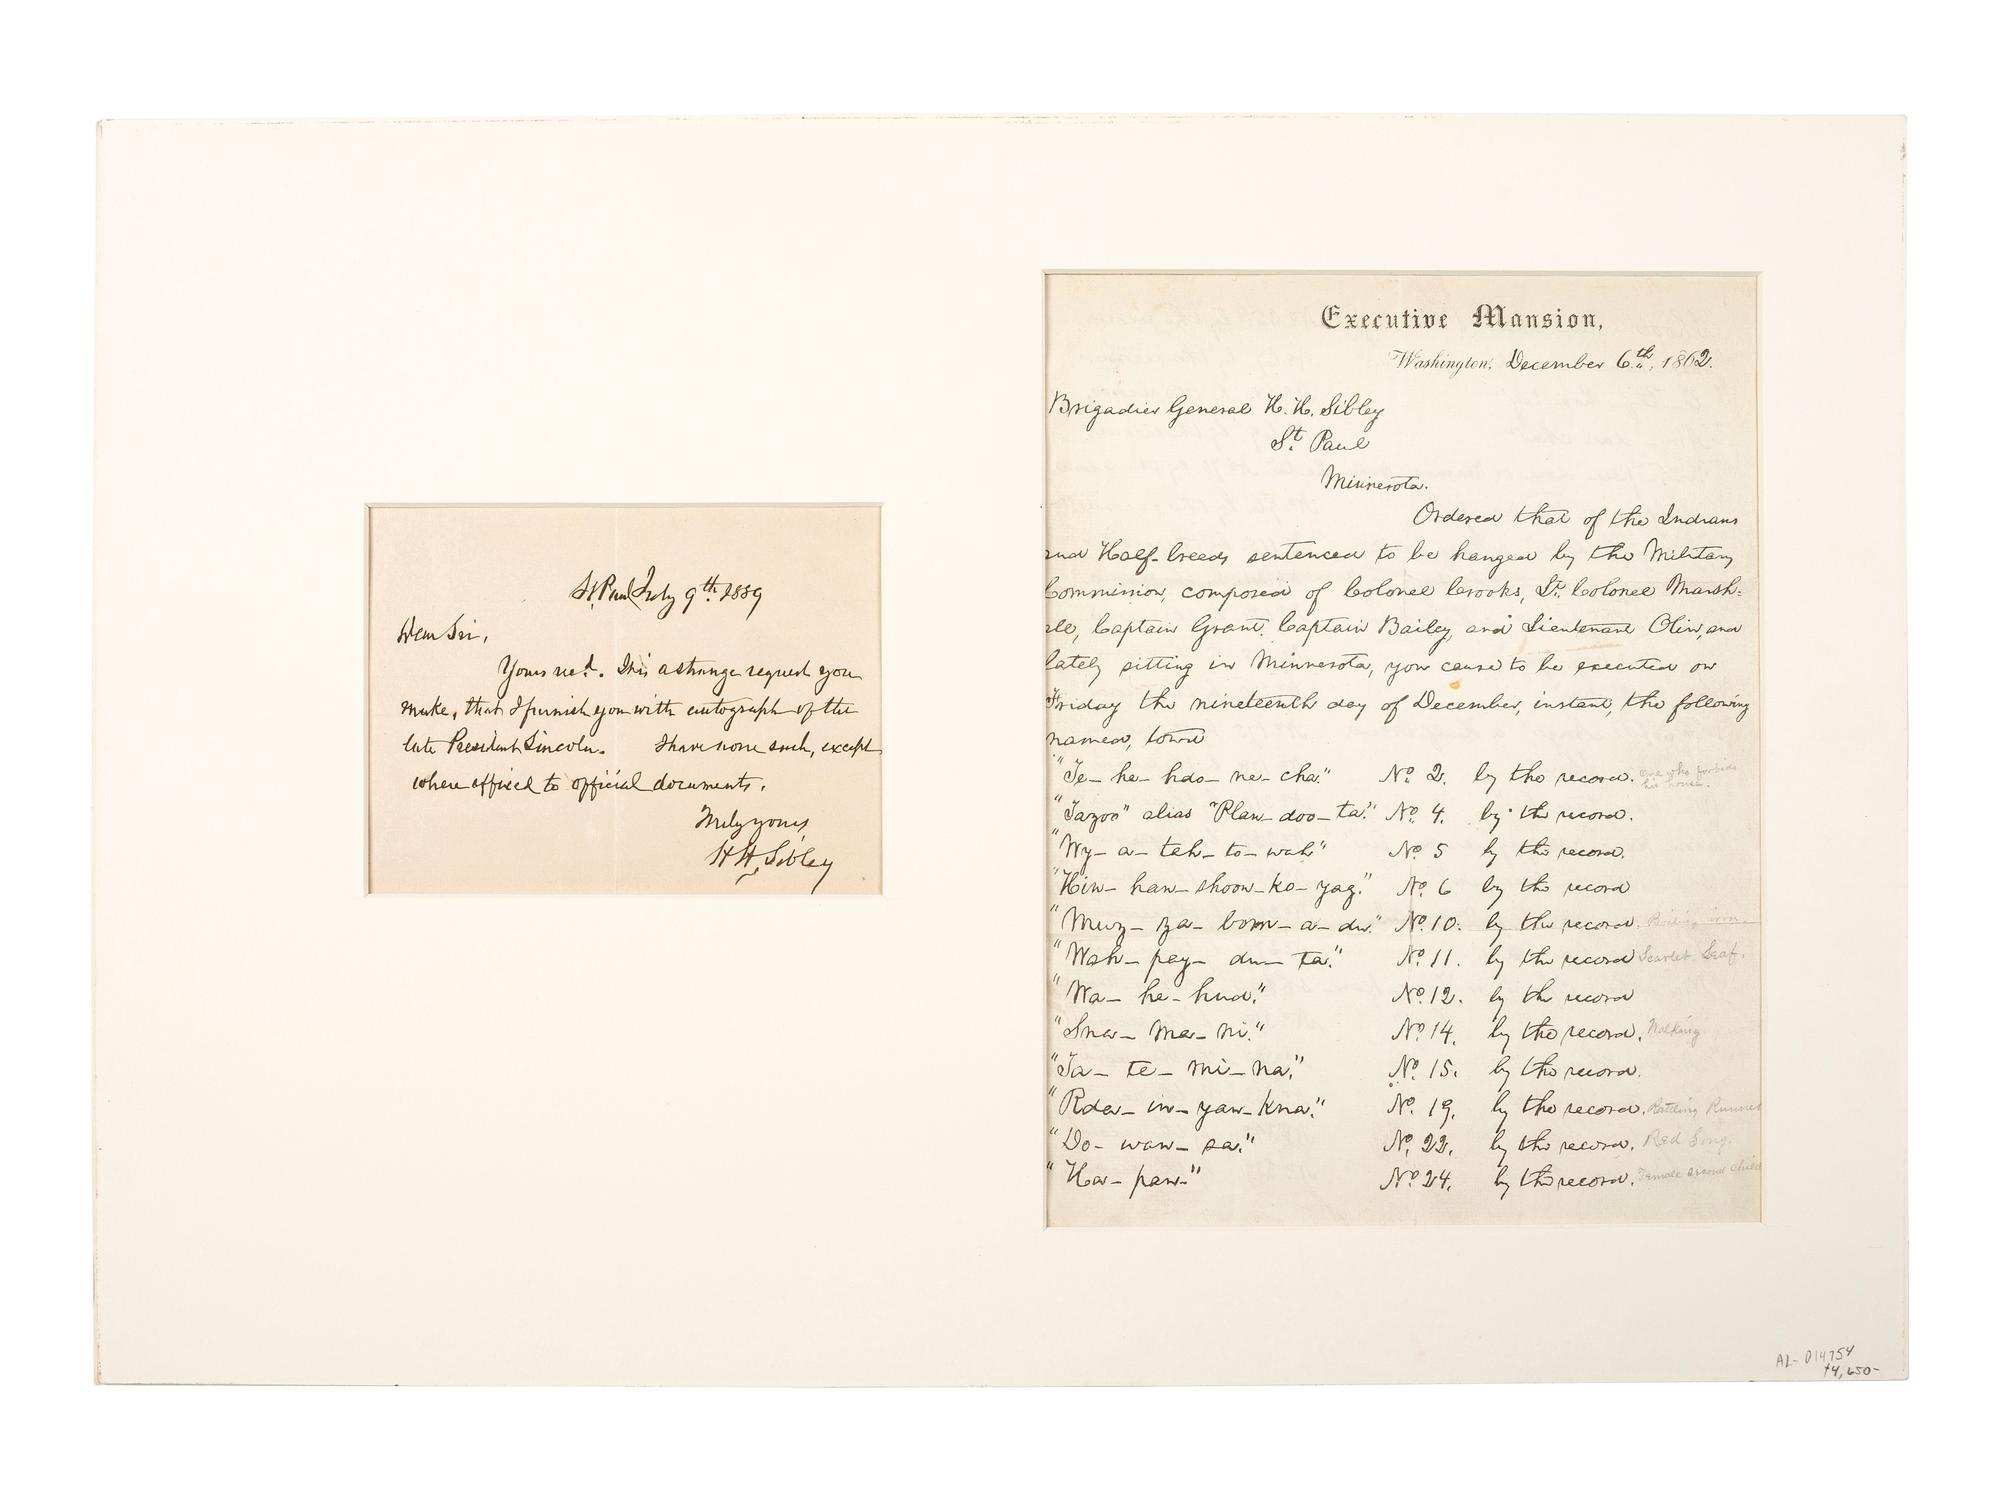 St. Paul July 9th 1889
Dear Sir,
Yours recd. It is a strange request you
make, that I furnish you with autograph of the
late President Lincoln. I have none such, except
where affixed to official documents.
Truly yours,
H H Sibley
Executive Mansion,
Washington, December 6th, 1862.
Brigadier General H. H. Sibley
St. Paul
Minnesota.
Ordered that of the Indians
and Half-breeds sentenced to be hanged by the Military
Commission, composed of Colonel Crooks, Lt. Colonel Marsh-
all, Captain Grant, Captain Bailey, and Lieutenant Olin, and
lately sitting in Minnesota, you cause to be executed on
Friday the nineteenth day of December, instant, the following
named, towit
"Te-he-hdo-ne-cha." No. 2. by the record. one who forbids
his house.
"Tazoo" alias "Plan-doo-ta." No. 4. by the record.
"Wy-a-teh-to-wah" No. 5 by the record.
"Hin-han-shoon-ko-yag." No. 6 by the record
"Muz-za-bom-a-du." No. 10. by the record. Boiling iron
"Wah-pey-du-ta." No. 11. by the record Scarlet Leaf.
"Wa-he-hud." No. 12. by the record
"Sna-ma-ni." No. 14. by the record. Walking
"Ta-te-mi-na." No. 15. by the record.
"Rda-in-yan-kna." No. 19. by the record. Rattling Runner
"Do-wan-sa." No. 22. by the record. Red Song.
"Ha-pan." No. 24. by the record. Female second child
AL-D14754
$4,650-